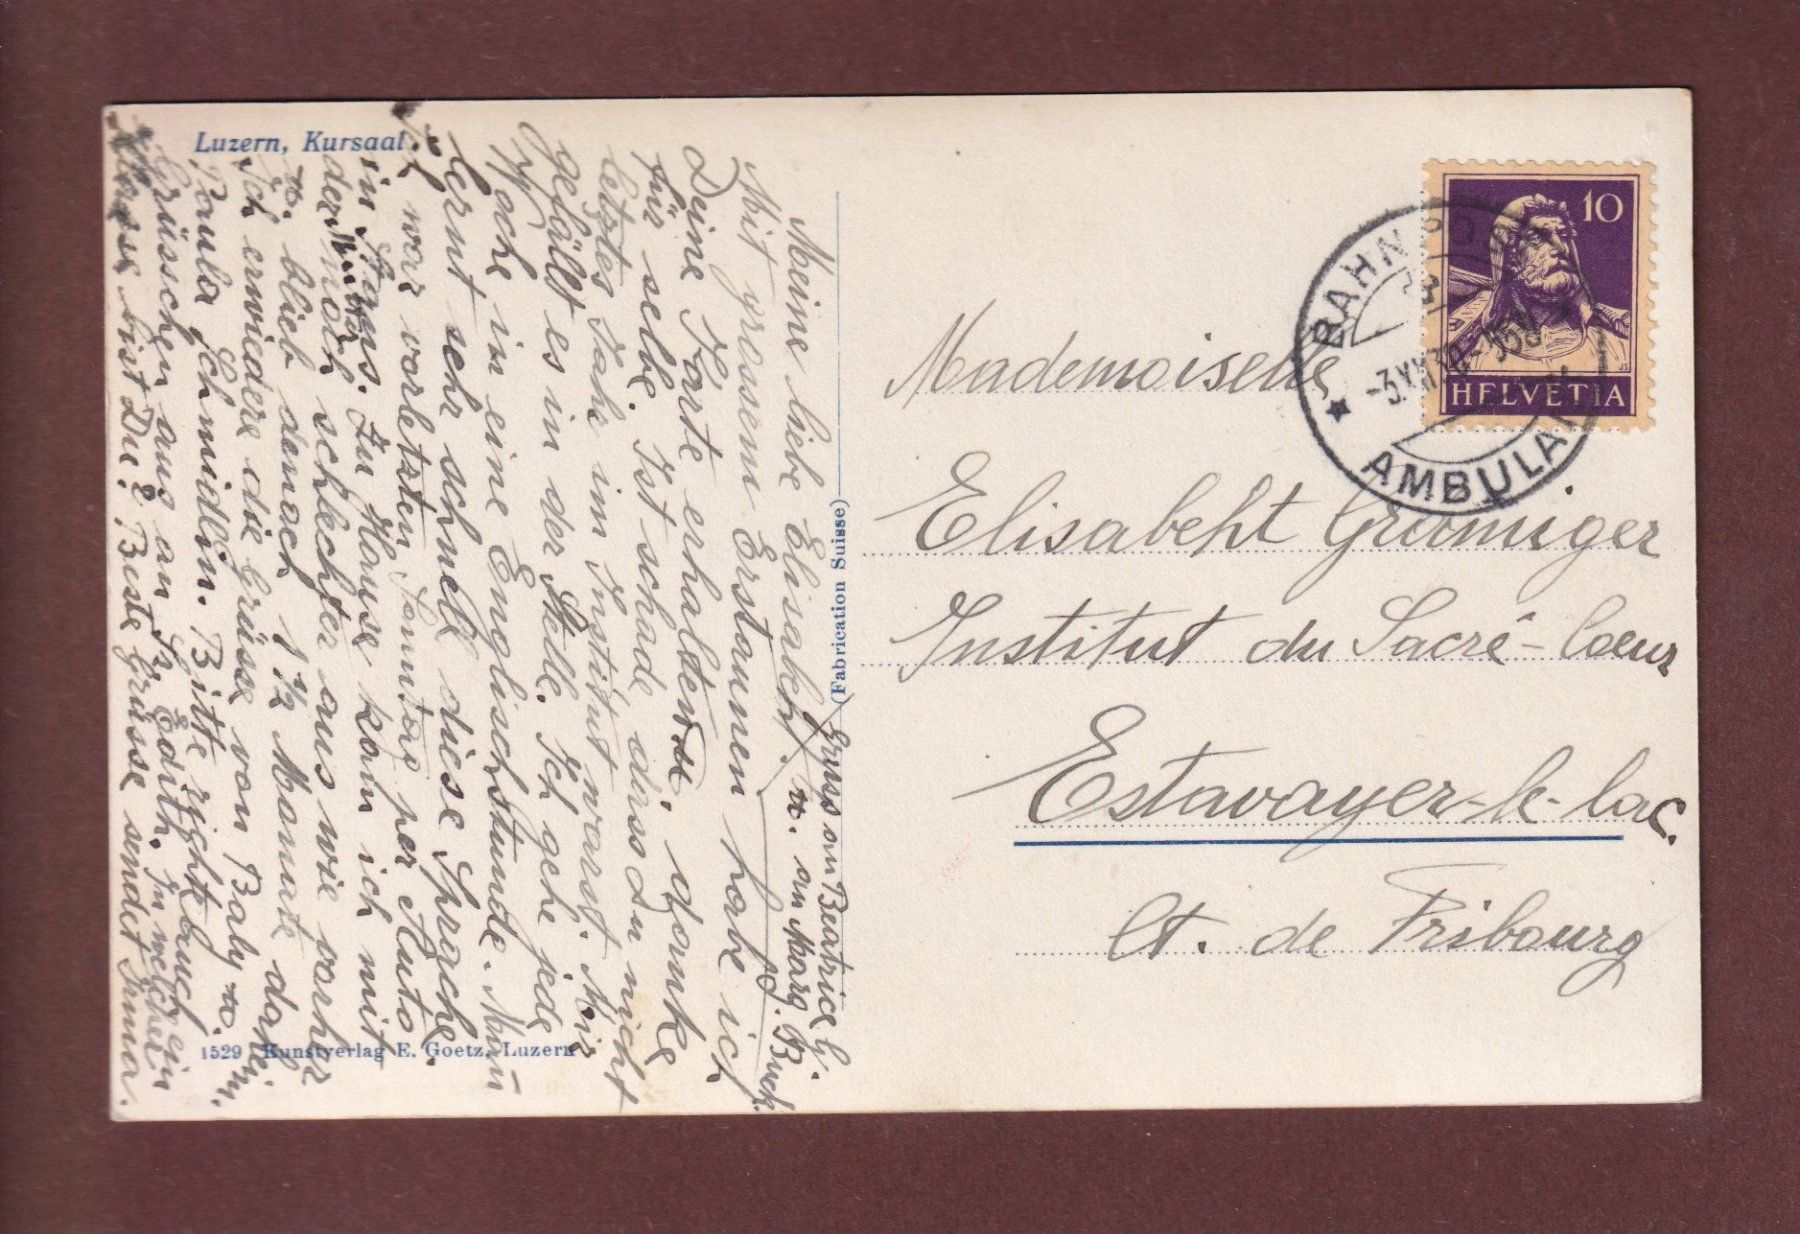 Luzern, Kursaal.
Meine liebe Elisabeht.
Mit grossem Erstaunen habe ich
Deine Karte erhalten u. danke
für selbe. Ist schade dass du nicht
letztes Jahr im Institut warst. Mir
gefällt es in der Stelle. Ich gehe jede
Woche in eine Englischstunde. Man
lernt sehr schnell diese Sprache.
Ich war vorletzten Sonntag per Auto
in Zu Hause kam ich mit
der noch schlechter aus wie vorher
u. blieb danach 1½ Monate daheim.
Ich erwiedere die Grüsse von Baly u.
Paula Schmidlin. Bitte richte auch ein
Grüsschen aus an Edith. In welcher
Klasse bist Du? Beste Grüsse sendet Irma.
Gruss an Beatrice G.
u. an Marg. Buck.
1529 Kunstverlag E. Goetz, Luzern
(Fabrication Suisse)
10
HELVETIA
BAHNPOST
AMBULANT
Mademoiselle
Elisabeht Gramiger
Institut du Sacré-Coeur
Estavayer-le-lac.
Ct. de Fribourg